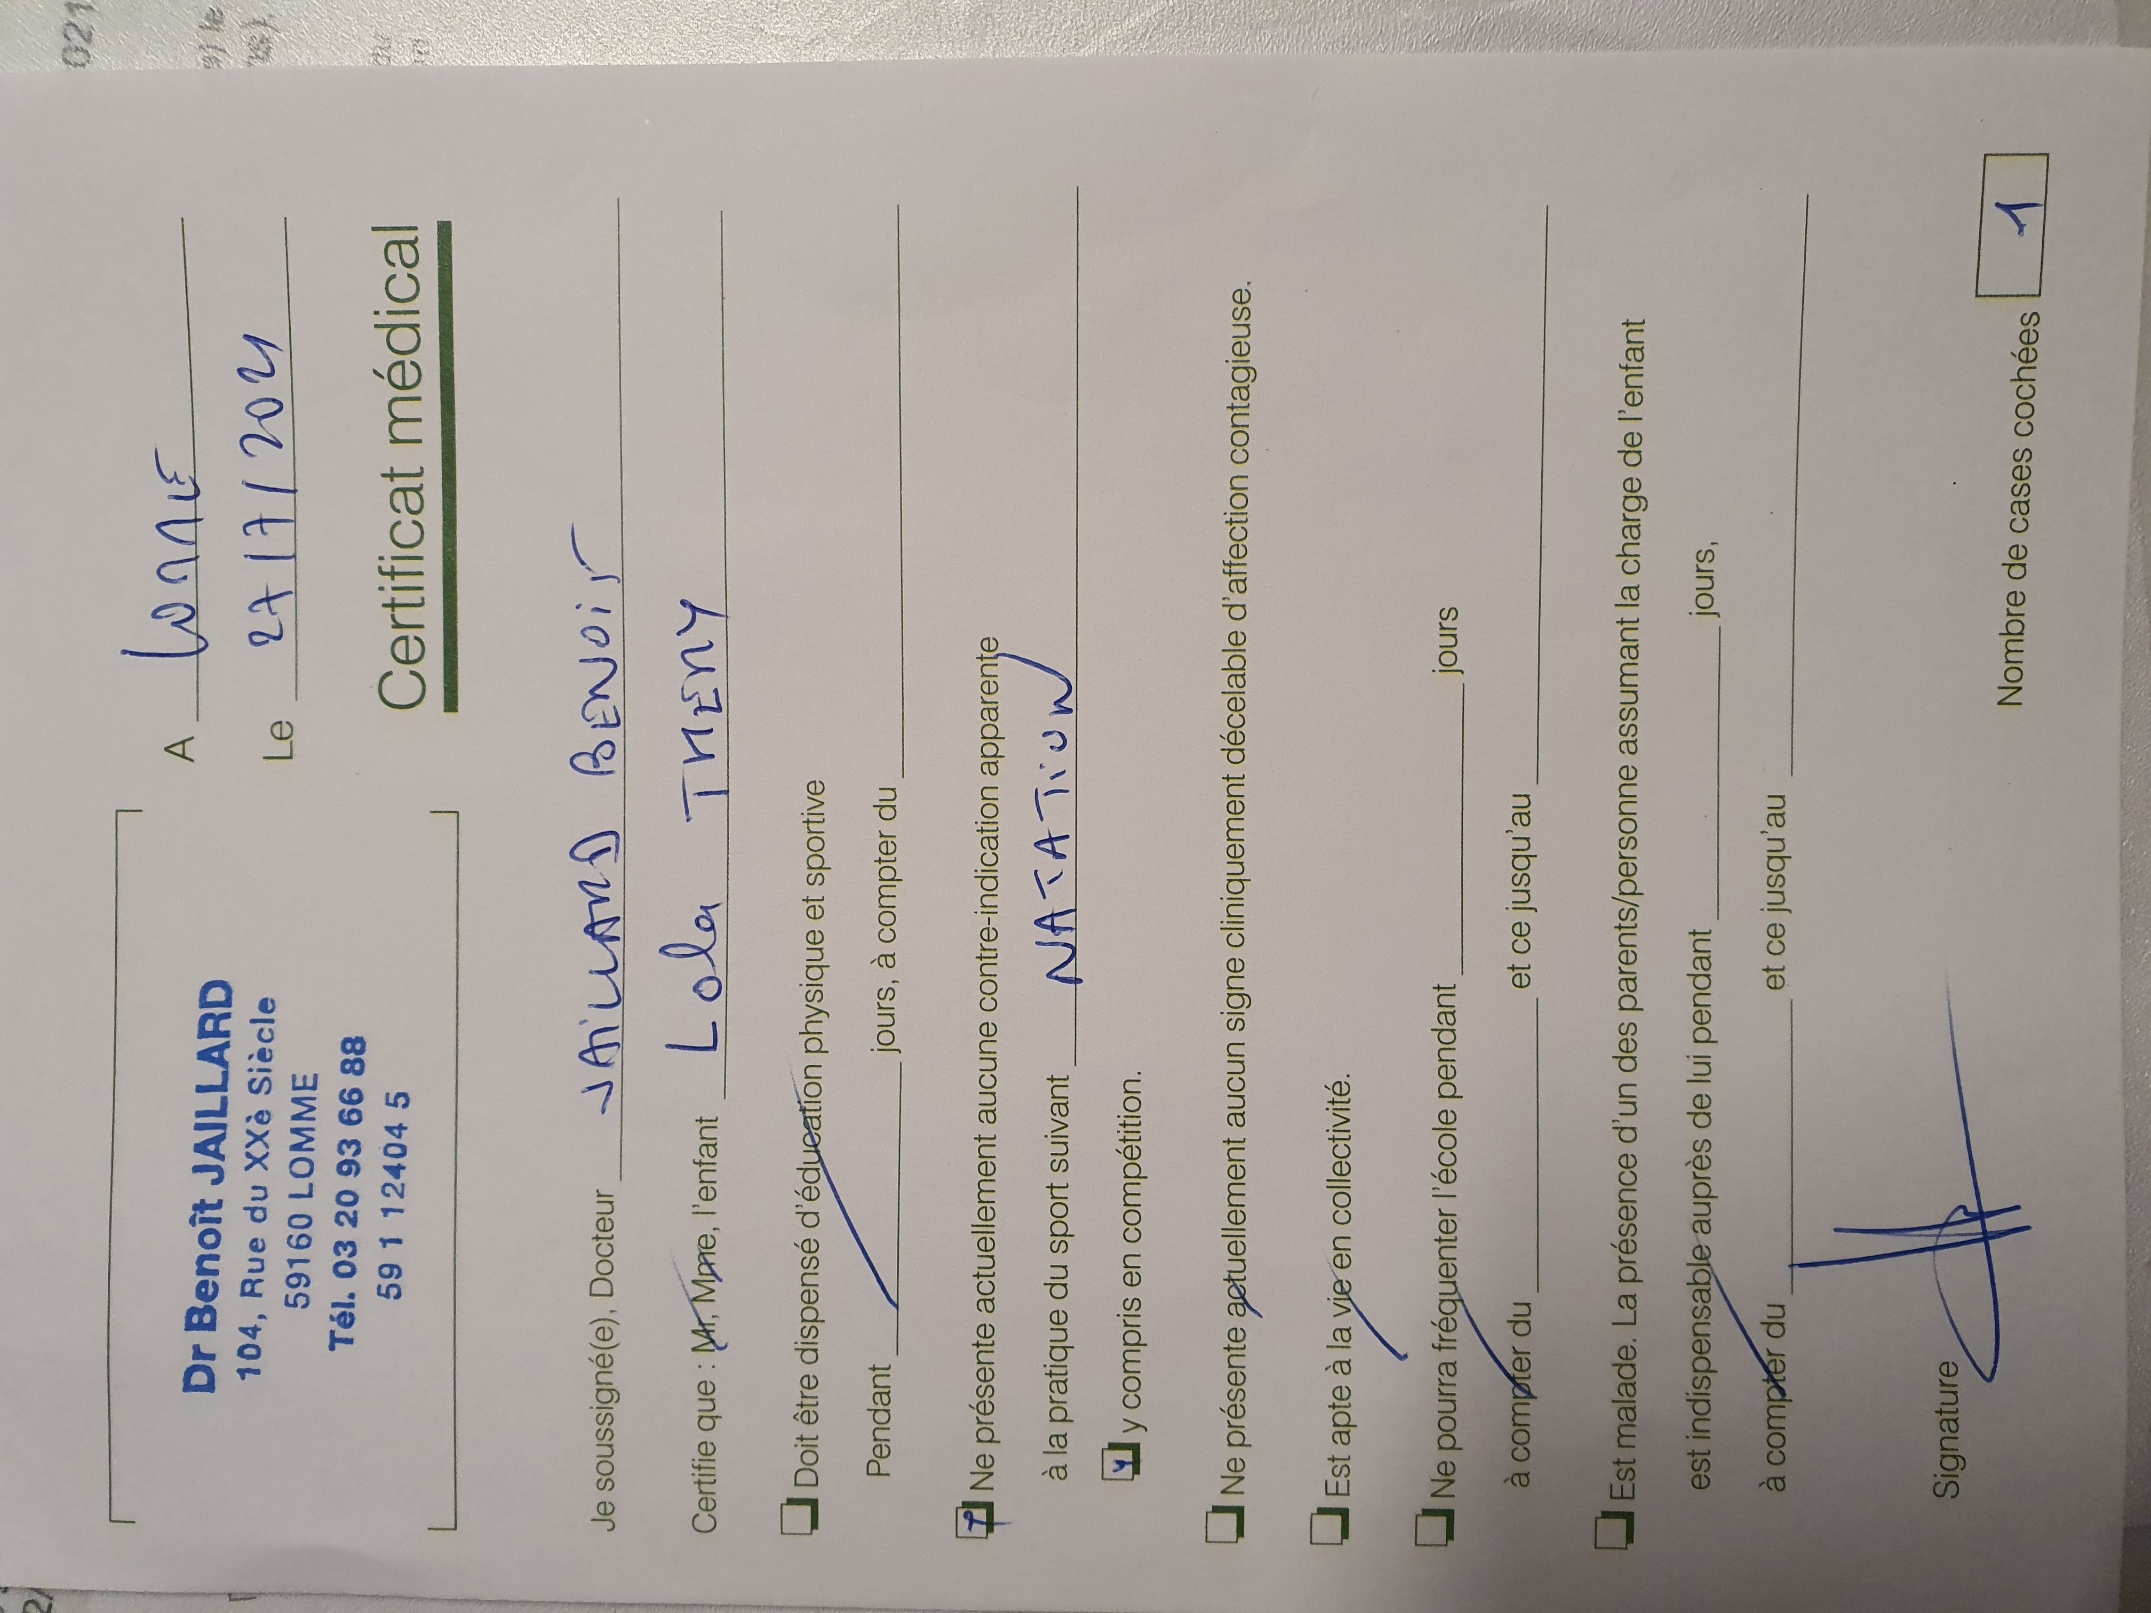 Dr Benoît JAILLARD
104, Rue du XXè Siècle
59160 LOMME
Tél. 03 20 93 66 88
59 1 1 2404 5
A LOMME
Le 27/7/2021
Certificat médical
Je soussigné(e), Docteur JAILLARD BENOiT
Certifie que : Mr, Mme, l'enfant Lola THERY
Doit être dispensé d'éducation physique et sportive
Pendant jours, à compter du
Ne présente actuellement aucune contre-indication apparente
à la pratique du sport suivant NATATioN
y compris en compétition.
Ne présente actuellement aucun signe cliniquement décelable d'affection contagieuse.
Est apte à la vie en collectivité.
Ne pourra fréquenter l'école pendant jours
à compter du et ce jusqu'au
Est malade. La présence d'un des parents/personne assumant la charge de l'enfant
est indispensable auprès de lui pendant jours,
à compter du et ce jusqu'au
Signature
Nombre de cases cochées 1